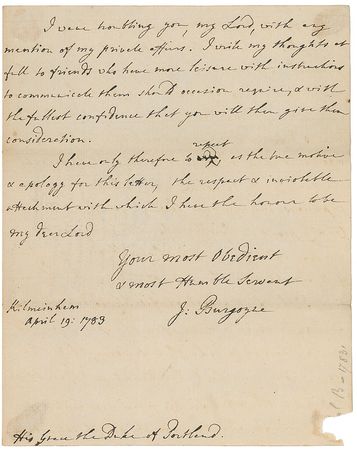 I wave troubling you, my Lord, with any
mention of my private affairs. I write my thoughts at
full to friends who have more leisure with instructions
to communicate them should occasion require, & with
the fullest confidence that you will then give them
consideration.
repeat
I have only therefore to as the true motive
& apology for this letter, the respect & inviolable
attachment with which I have the honour to be
my Dear Lord
Your most Obedient
& most Humble Servant
J: Burgoyne
Kilmainham
April 19: 1783
His Grace the Duke of Portland.